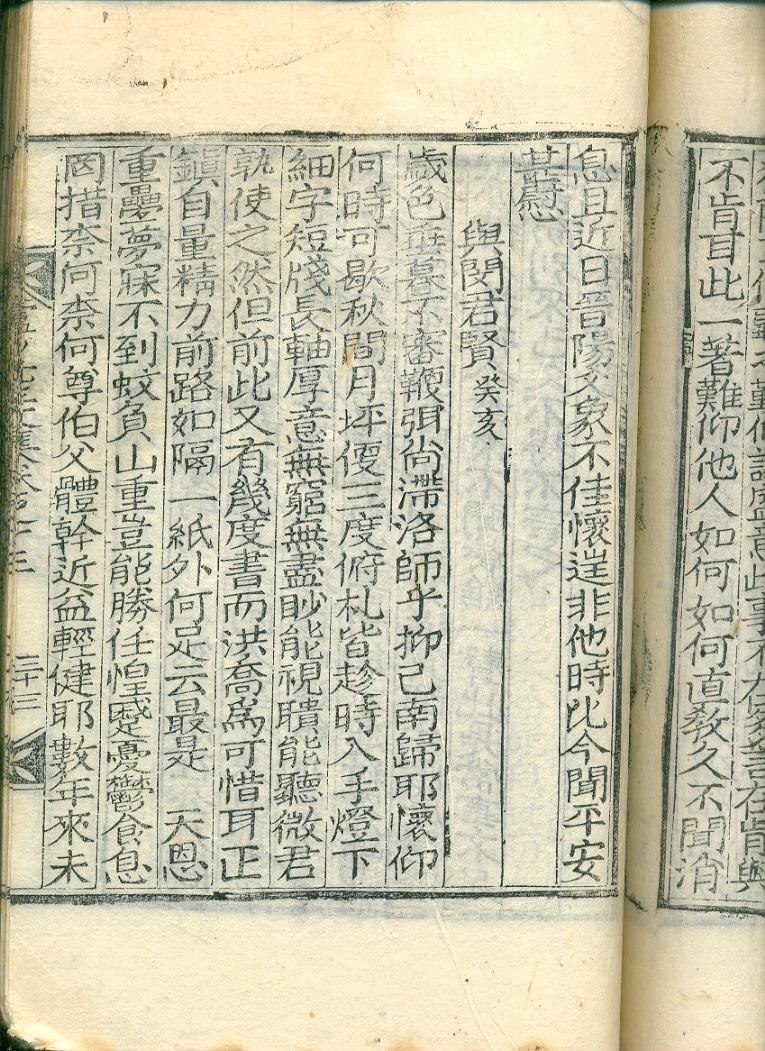 不肯耳此一著難仰他人如何如何直教久不聞消
息且近日晉陽爻象不佳懷迋非他時比今聞平安
甚慰
與閔君賢癸亥
歲色垂暮不審鞭弭尚滯洛師乎抑已南歸耶懷仰
何時可歇秋間月坪便三度俯札皆趁時入手燈下
細字短牋長軸厚意無窮無盡眇能視聵能聽微君
孰使之然但前此又有幾度書而洪喬爲可惜耳正
鎭自量精力前路如隔一紙外何足云最是 天恩
重疊夢寐不到蚊負山重豈能勝任惶蹙憂鬱食息
罔措柰何柰何尊伯父體幹近益輕健耶數年來未
二十三